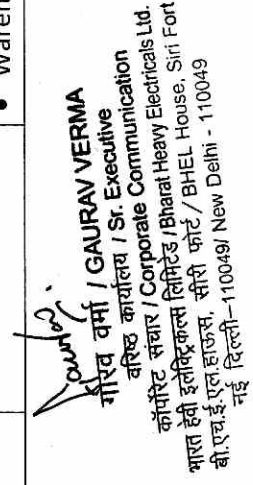 • Waren
गौरव वर्मा / GAURAV VERMA
वरिष्ठ कार्यालय / Sr. Executive
कॉर्पोरेट संचार / Corporate Communication
भारत हेवी इलेक्ट्रिकल्स लिमिटेड / Bharat Heavy Electricals Ltd.
बी.एच.ई.एल.हाऊस, सीरी फोर्ट / BHEL House, Siri Fort
नई दिल्ली–110049/ New Delhi - 110049